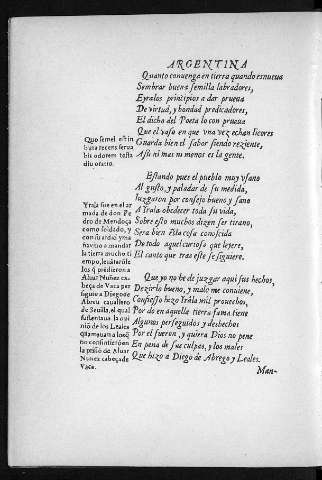 ARGENTINA
Quanto conuenga en tierra quando es nueua
Sembrar buena semilla labradores,
Eyralos principios a dar prueua
De virtud, y bondad predicadores,
El dicho del Poeta lo con prueua
Que el vaso en que vna vez echan licores
Guarda bien el sabor siendo reziente,
Asu ni mas ni menos es la gente.
Quo semel est in
buta recens serua
bis odorem testa
diu oratio.
Estando pues el pueblo muy vfano
Al gusto, y paladar de su medida,
Iuzgaron por consejo bueno y sano
A Yrala obedecer toda su vida,
Sobre esto muchos dizen ser tirano,
Sera bien esta cosa conoscida
De todo aquel curioso que leyere,
El canto que tras este se siguiere.
Yrala fue en el ar
mada de don Pe
dro de Mendoça
como soldado, y
con su ardid y ma
ña vino a mandar
la tierra mucho ti
empo, leuātaroſe
los q̄ prēdieron a
Aluar Nuñez ca-
beça de Vaca per
siguio a Diego de
Abreu cauallero
de Seuilla, el qual
sustentaua la opi
niō de los Leales
q̄ llamauan a los q̄
no consintierō en
la prisiō de Aluar
Nuñez cabeça de
Vaca.
Que yo no he de juzgar aqui sus hechos,
Dezirlo bueno, y malo me conuiene,
Confiesso hizo Yrala mil prouechos,
Por do en aquella tierra fama tiene
Algunos perseguidos y deshechos
Por el fueron, y quiera Dios no pene
En pena de sus culpas, y los males
Que hizo a Diego de Abrego y Leales.
Man-